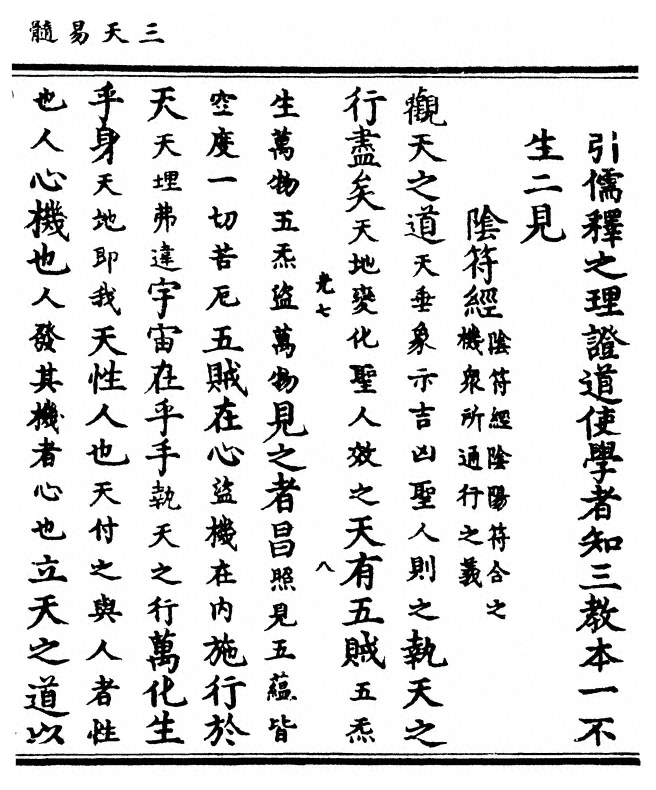 三天易髓
引儒釋之理證道使學者知三教本一不
生二見
陰符經
陰符經陰陽符合之
機衆所通行之義
觀天之道天垂象示吉凶聖人則之執天之
行盡矣天地變化聖人效之天有五賊五炁
光七
八
生萬物五炁盜萬物見之者昌照見五蘊皆
空度一切苦厄五賊在心盜機在内施行於
天天埋弗違宇宙在乎手執天之行萬化生
乎身天地即我天性人也天付之與人者性
也人心機也人發其機者心也立天之道以